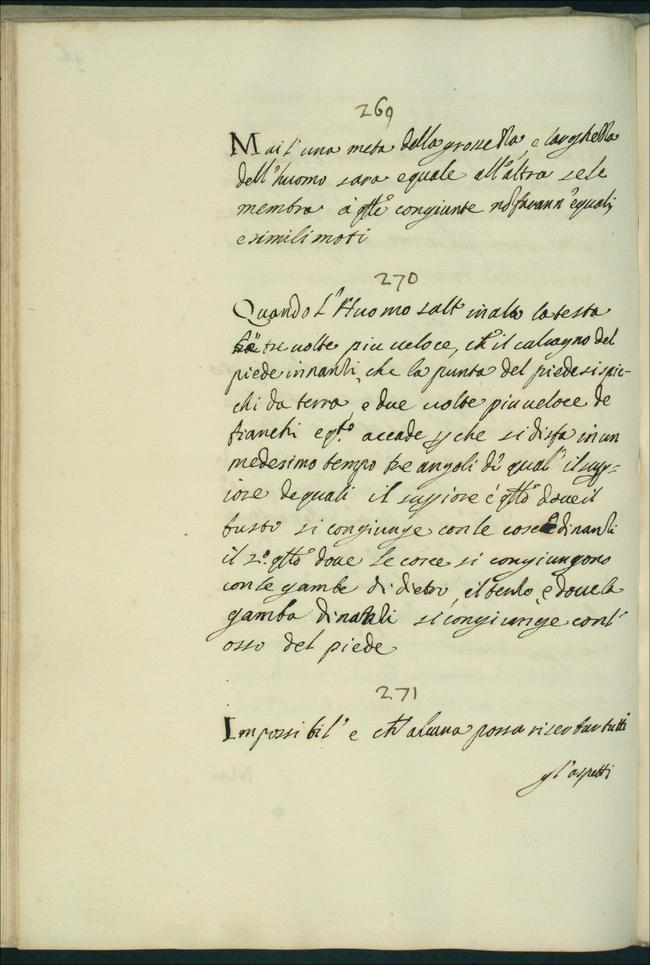 269
Mai l'una meta della grossezza, e larghezza
dell'huomo sara equale all'altra se le
membra à qste congiunte nō farann'equali,
e simili moti
270
Quando l'Huomo salt' in alto la testa
tre volte piu veloce, che il calcagno del
piede innanzi, che la punta del piede si spic-
chi da terra, e due volte piu veloce de
fianchi e qto accade p che si disfa in un
medesimo tempo tre angoli di qual' il supp-
iore de quali il suppiore é qllo dove il
busto si congiunge con le coscie dinanzi
il 2º qllo dove le cosce si congiungono
con le gambe di dietro, il terzo è dove la
gamba dinanzi si congiunge con l'
osso del piede
271
Impossibil' e ch' alcuna possa riserbar tutti
gl'aspetti